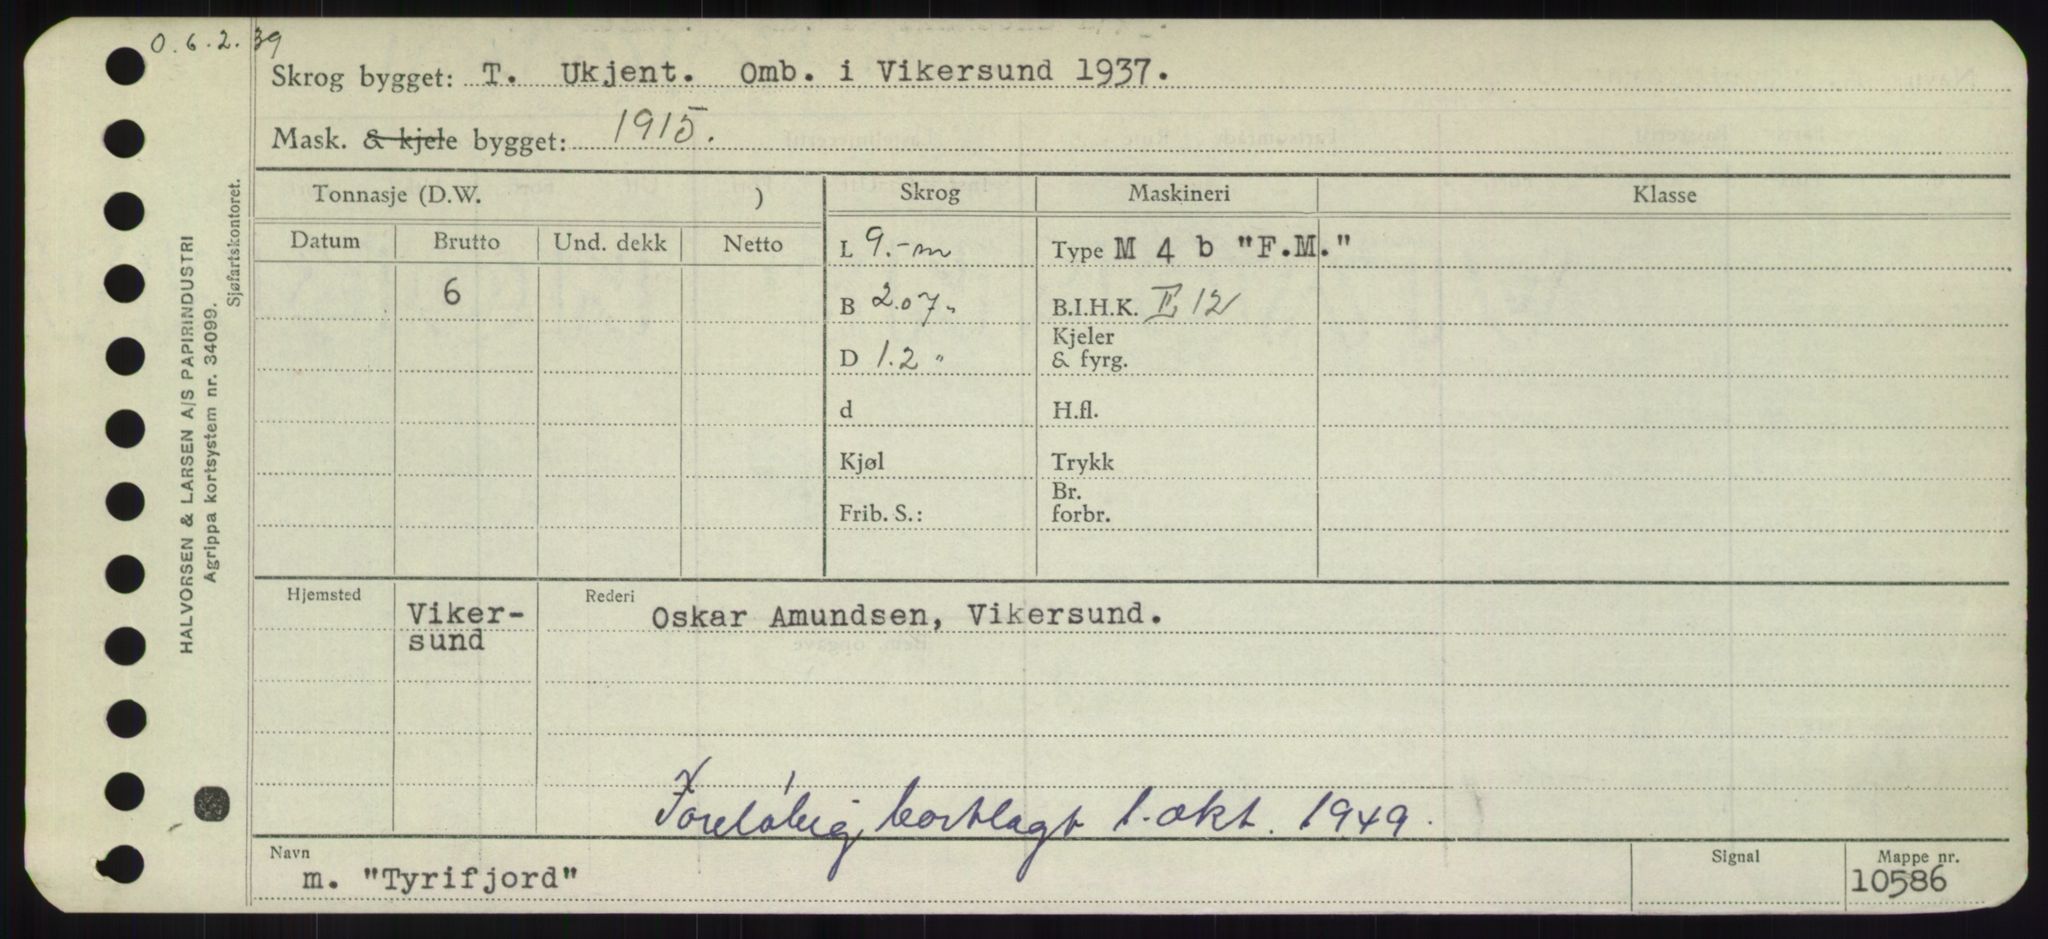 O. 6. 2. 39
Skrog bygget: T. Ukjent. Omb. i Vikersund 1937.
Mask. & kjele bygget: 1915.
Tonnasje (D.W. )
Skrog
Maskineri
Klasse
Datum
Brutto
Und. dekk
Netto
6
L 9.-m
B 2.07"
D 1.2 "
d
Kjøl
Frib. S.:
Type M 4 b "F.M."
B.I.H.K. II 12
Kjeler
& fyrg.
H.fl.
Trykk
Br.
forbr.
Hjemsted
Viker-
sund
Rederi
Oskar Amundsen, Vikersund.
Foreløbig bortlagt 1. okt. 1949.
Navn
m. "Tyrifjord"
Signal
Mappe nr.
10586
HALVORSEN & LARSEN A/S PAPIRINDUSTRI
Agrippa kortsystem nr. 34099.
Sjøfartskontoret.